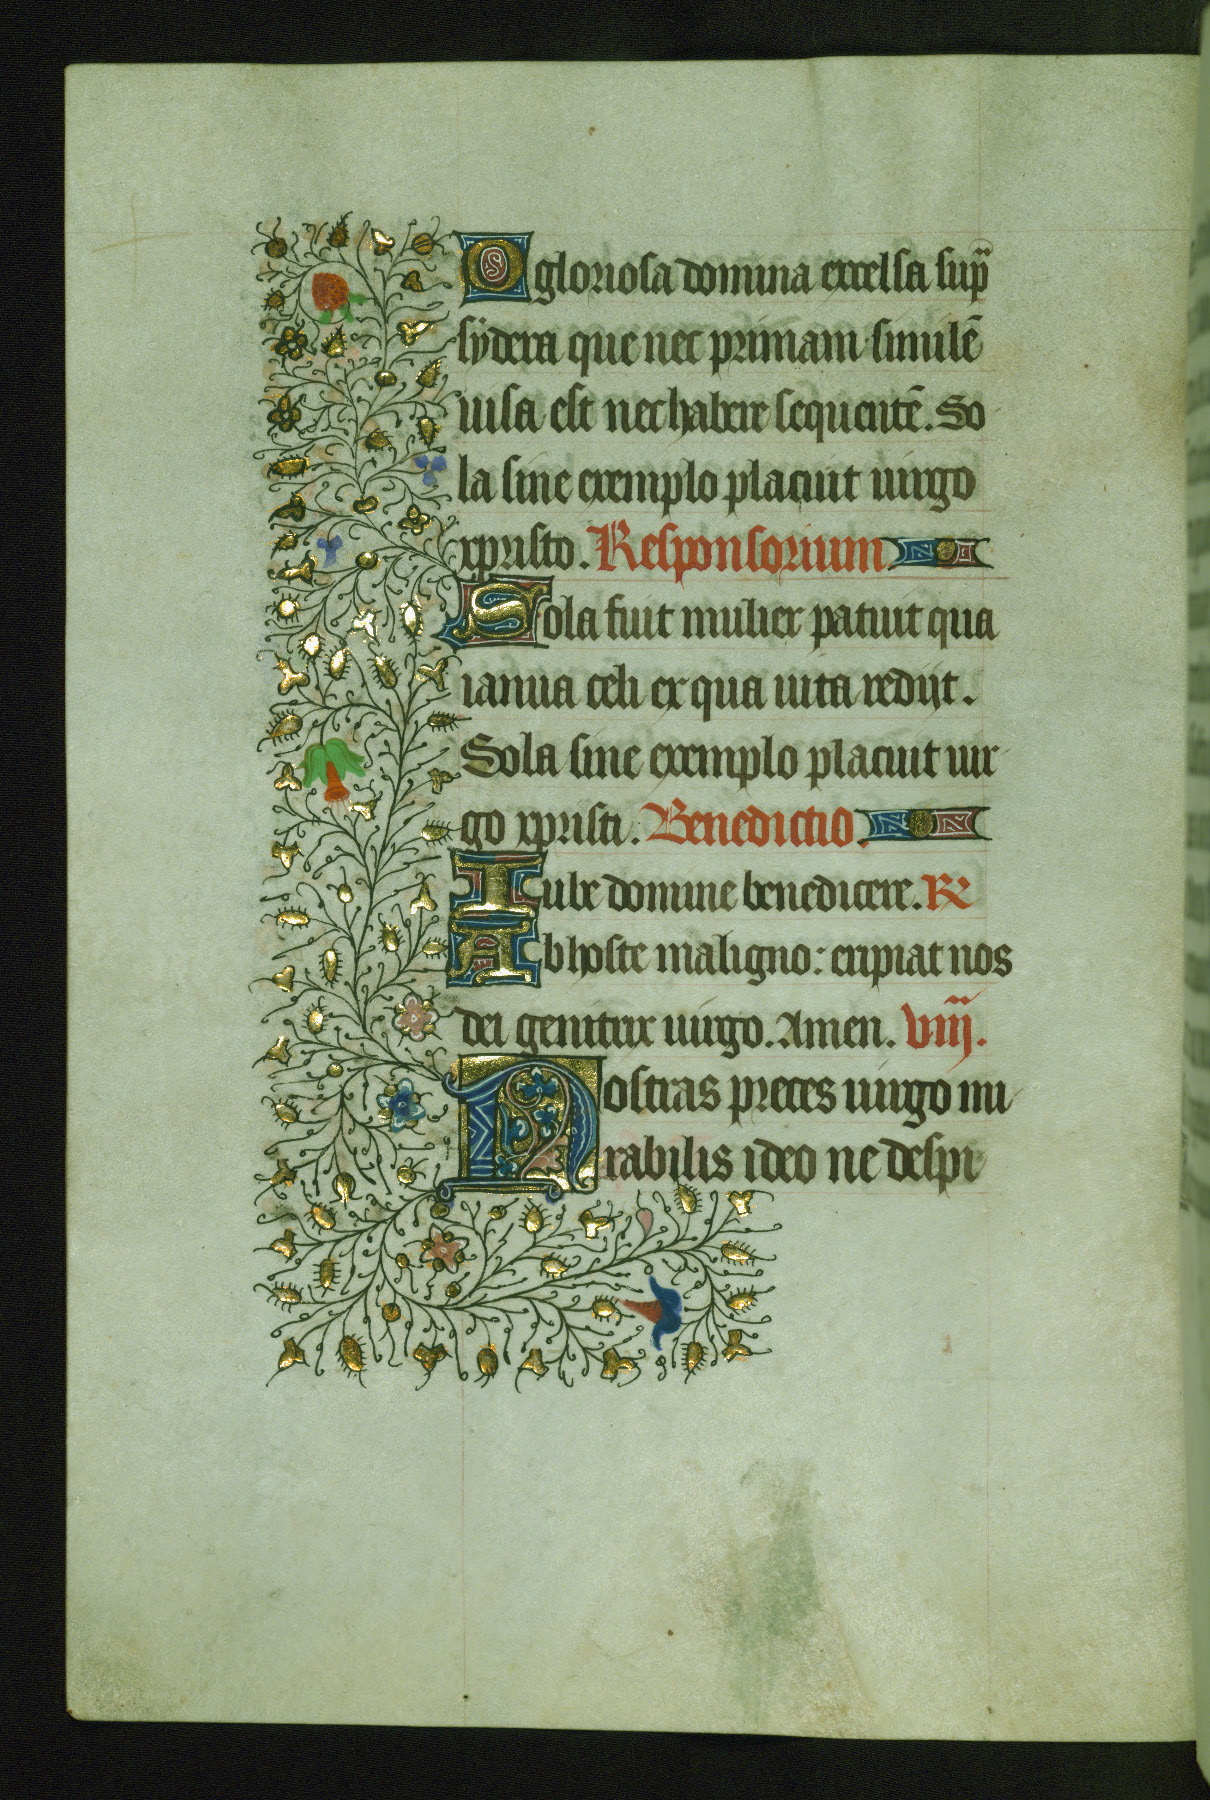 O gloriosa domina excelsa sup̄
sÿdera que nec primam similē
uisa est nec habere sequentē. So
la sine exemplo placuit uirgo
xpristo. Responsorium
Sola fuit mulier patuit qua
ianua celi ex qua uita redijt.
Sola sine exemplo placuit uir
go xpristi. Benedictio.
Iube domine benedicere. R
Ab hoste maligno: eripiat nos
dei genitrix uirgo. Amen. viij.
Nostras preces uirgo mi
rabilis ideo ne despi